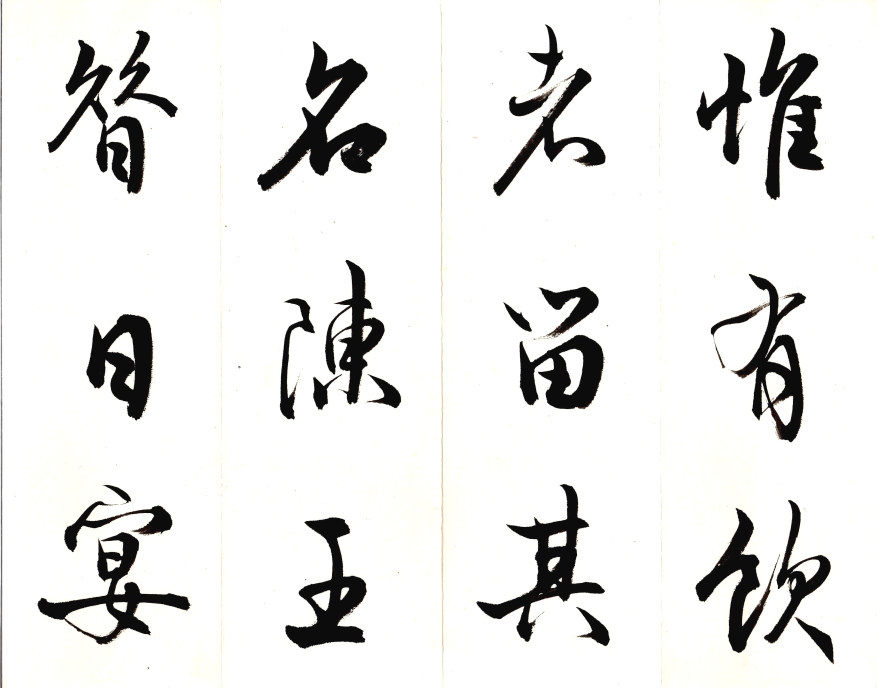 惟有飲
者留其
名陳王
昔日宴